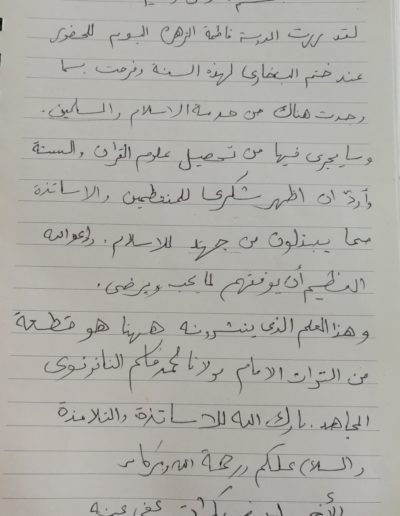 لقد زرت المدرسة فاطمة الزهراء اليوم للحضور
عند ختم البخاري لهذه السنة وفرحت بما
وجدت هناك من خدمة الاسلام والمسلمين.
وما يجرى فيها من تحصيل علوم القرآن والسنة
وأردّ ان اظهر شكرى للمنظمين والاساتذة
مما يبذلون من جهد للاسلام. وادعو الله
العظيم أن يوفقهم لما يحب ويرضى.
وهذا العلم الذى ينشرونه ههنا هو قطعة
من التراث الامام مولانا محمد قاسم النانوتوى
المجاهد. بارك الله للاساتذة والتلامذة
والسلام عليكم ورحمة الله وبركاته